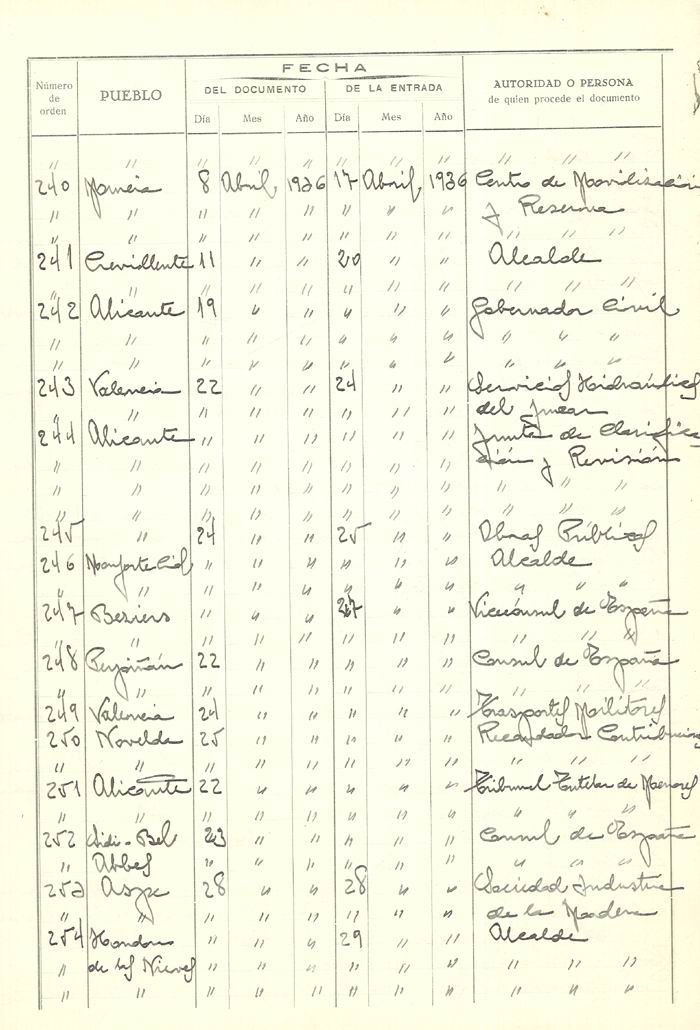 FECHA
Número de orden PUEBLO DEL DOCUMENTO DE LA ENTRADA AUTORIDAD O PERSONA de quien procede el documento
Día Mes Año Día Mes Año
" " " " " " "
240 Murcia 8 Abril 1936 17 Abril 1936 Centro de Movilización
" " " " " " " " y Reserva
" " " " " " " " " " "
241 Crevillente 11 " " 20 " " Alcalde
" " " " " " " " " " "
242 Alicante 19 " " " " " Gobernador Civil
" " " " " " " " " " "
" " " " " " " " " " "
243 Valencia 22 " " 24 " " Servicios Hidráulicos
" " " " " " " " del Jucar
244 Alicante " " " " " " Junta de Clasifica
" " " " " " " " ción y Revisión
" " " " " " " " " " "
" " " " " " " " " " "
245 " 24 " " 25 " " Obras Públicas
246 Monforte Cid " " " " " " Alcalde
" " " " " " " " " "
247 Beziers " " " 27 " " Viceconsul de España
" " " " " " " " " " "
248 Perpiñán 22 " " " " " Consul de España
" " " " " " " " " " "
249 Valencia 24 " " " " " Trasportes Militares
250 Novelda 25 " " " " " Recaudador Contribucions
" " " " " " " " " " "
251 Alicante 22 " " " " " Tribunal Tutelar de Menores
" " " " " " " " " " "
252 Sidi-Bel 23 " " " " " Consul de España
" Abbes " " " " " " " " "
253 Aspe 28 " " 28 " " Sociedad Industria
" " " " " " " " de la Madera
254 Hondon " " " 29 " " Alcalde
" de las Nieves " " " " " " " " "
" " " " " " " " " " "